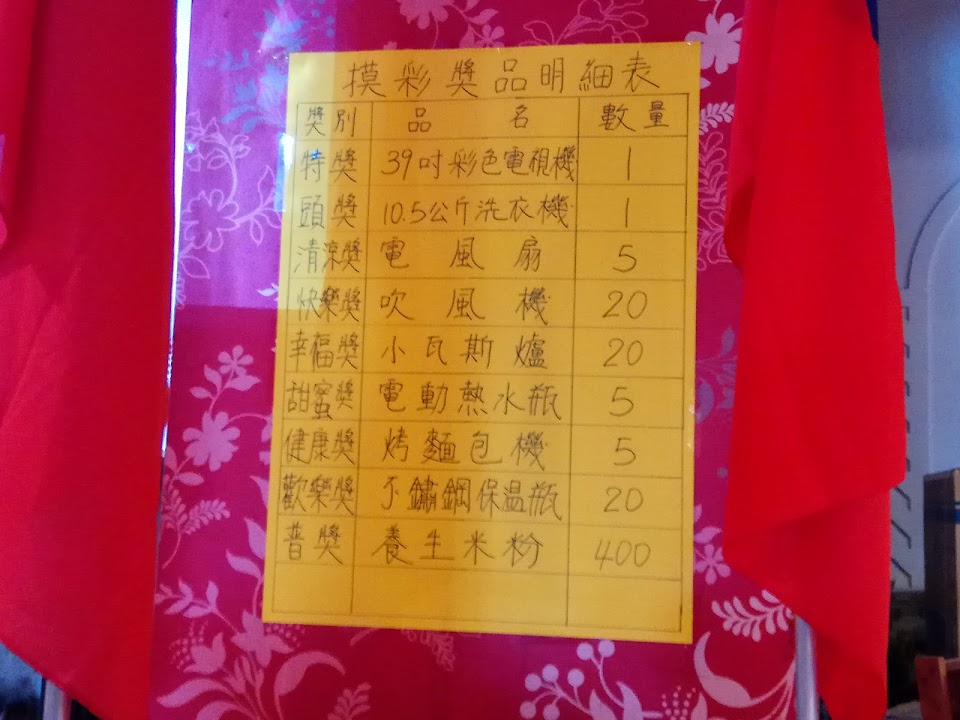 摸彩獎品明細表
獎別 品名 數量
特獎 39吋彩色電視機 1
頭獎 10.5公斤洗衣機 1
清涼獎 電風扇 5
快樂獎 吹風機 20
幸福獎 小瓦斯爐 20
甜蜜獎 電動熱水瓶 5
健康獎 烤麵包機 5
歡樂獎 不鏽鋼保温瓶 20
普獎 養生米粉 400